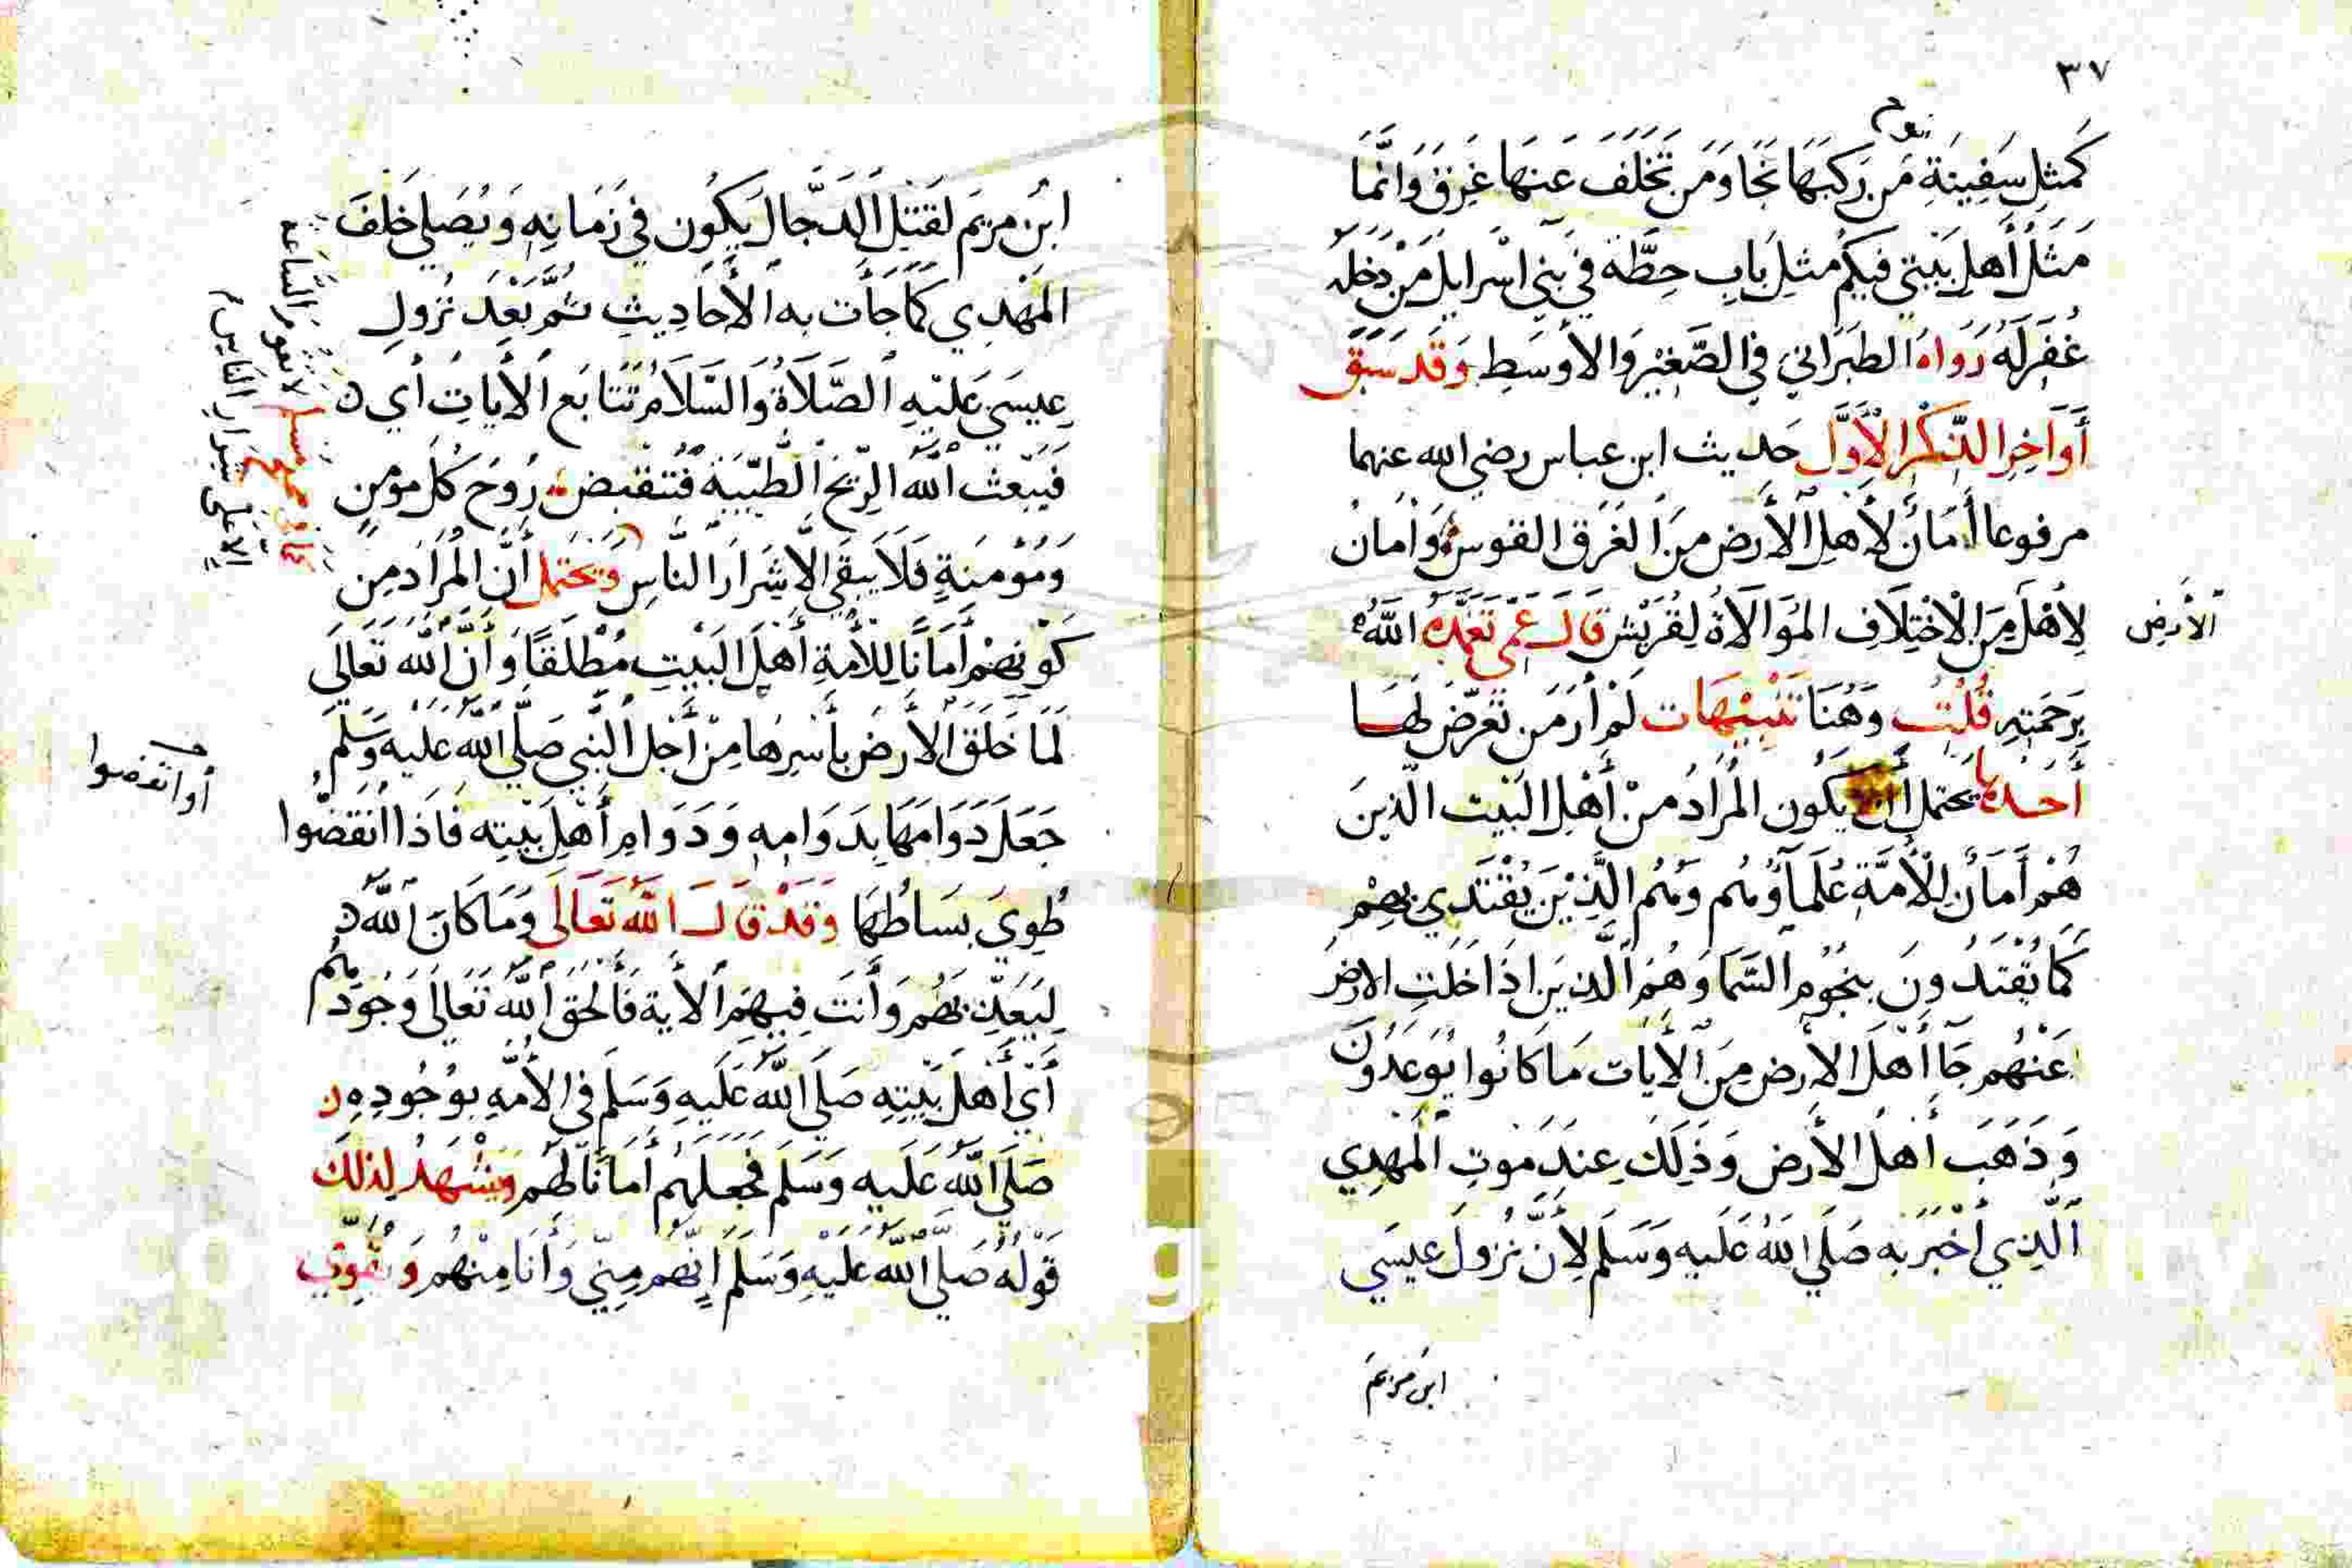 ٣٧
نوح
كَمَثَلِ سَفِينَةِ مَن رَكِبَهَا نَجَا وَمَن تَخَلَّفَ عَنهَا غَرِقَ وَاِنَّمَا
مَثَلُ أَهلِ بَيْتِي فيكُم مَثلِ بَابِ حِطَّة فِي بَنِي اسْرايلَ مَنْ دَخَله
غُفِرَ لَهُ رَوَاهُ الطبَرَاني في الصَّغِيْرِ وَالأوسَطِ وَقَد سَبَقَ
أَوَاخِرِ الذِّكْرِ الأَوَّلِ حَديث ابن عباس رضي الله عنهما
مرفوعا أَمَانٌ لأَهلِ الأَرض مِنَ الغَرَق القوسُ وَأمَانٌ
لِأَهْلِ مِنَ الاخْتِلَافِ المُوَالَاةُ لِقُرَيْشٍ قَالَ عَمِّي تَغَمَّدَهُ اللّهُ
الأرضِ
بِرَحْمَتِهِ قُلْتُ وَهُنَا تَنْبِيْهَات لَمْ أَرَ مَن تَعَرَّضَ لَهَا
أَحَدُهَا يَحتَمل أَنْ يَكُون المُرَادُ مِنْ أَهْلِ البَيْت الّذينَ
هُمْ أَمَانٌ لِلْأُمَّةِ عُلَمَاؤُهُم وَهُم الَّذِيْنَ يُقْتَدَي بِهِمْ
كَمَا يُقْتَدُونَ بِنجُومِ السَّمَا وَهُمُ الّذِينَ اذَا خَلَتِ الارضُ
عَنْهُم جَآ أَهلَ الارْضِ مِنَ الأيَات مَا كَانُوا يُوعَدُونَ
وَذَهَبَ أَهلُ الأَرض وَذَلِكَ عِندَ مَوتِ المَهدِي
الَّذِي أَخْبَرَ به صَلَي اللّهُ عَليه وَسَلم لِأَنّ نزُولَ عيسَي
ابن مريم
ابنِ مريَم لقَتلِ الدَّجَّال يَكُون في زَمَانِهِ وَيُصَلي خَلفَ
المَهْدِي كَمَا جَأت به الأَحَادِيثِ ثُمَّ بَعْدَ نُزُولِ
عِيسَي عَليْهِ الصَّلَاةُ وَالسَّلَامُ تَتَابَع الأَياتِ أي
فَيَبْعَث اللّهُ الرِّيحَ الطّيّبَةَ فَتَقبِضُ رُوحَ كُلّ مؤمنٍ
وَمُؤْمنَةٍ فَلَا يَبقَي الّا شِرَارَ النَاسِ وَيَحتَمل أَنَّ المُرَادَ مِن
لا تقوم السَّاعة
الا عَلي شِرَارِ النّاس
كَوْنِهِمْ أَمَانًا لِلأُمَّةِ أَهْلَ البَيْتِ مُطْلَقًا وَأَنَّ اللّهَ تَعَالَي
لَمَا خَلَقَ الأَرضَ بأَسْرِهَا مِنْ أَجْلِ النَّبي صَلَّي اللّهُ عَليه وَسَلَم
جَعَلَ دَوَامَهَا بِدَوَامِهِ وَدَوَامِ أَهْلِ بَيْتِه فَاذَا انْقَضُوا
أو انقضوا
طُوِيَ بِسَاطُهَا وَقَدْ قَالَ اللّهُ تَعَالَى وَمَا كَانَ اللّهُ
لِيُعَذِّبَهُم وَأَنتَ فِيهِمُ الأَية فَأَلحَقَ اللّهُ تَعَالَي وُجُودَهُم
أَيْ أَهْلَ بَيْتِهِ صَلَي اللّهُ عَلَيهِ وَسَلَم في الأُمّهِ بوُجُودِهِ
صَلَي اللّهُ عَلَيه وَسَلَم فجَعلهُم أَمَانًا لَهُم وَيَشْهَدُ لِذلكَ
قَوْلهُ صَلَّي اللّهُ عَلَيْهِ وَسَلَم اِنَّهُم مِنّي وَأَنَا مِنْهُم وَيُقَوِّي